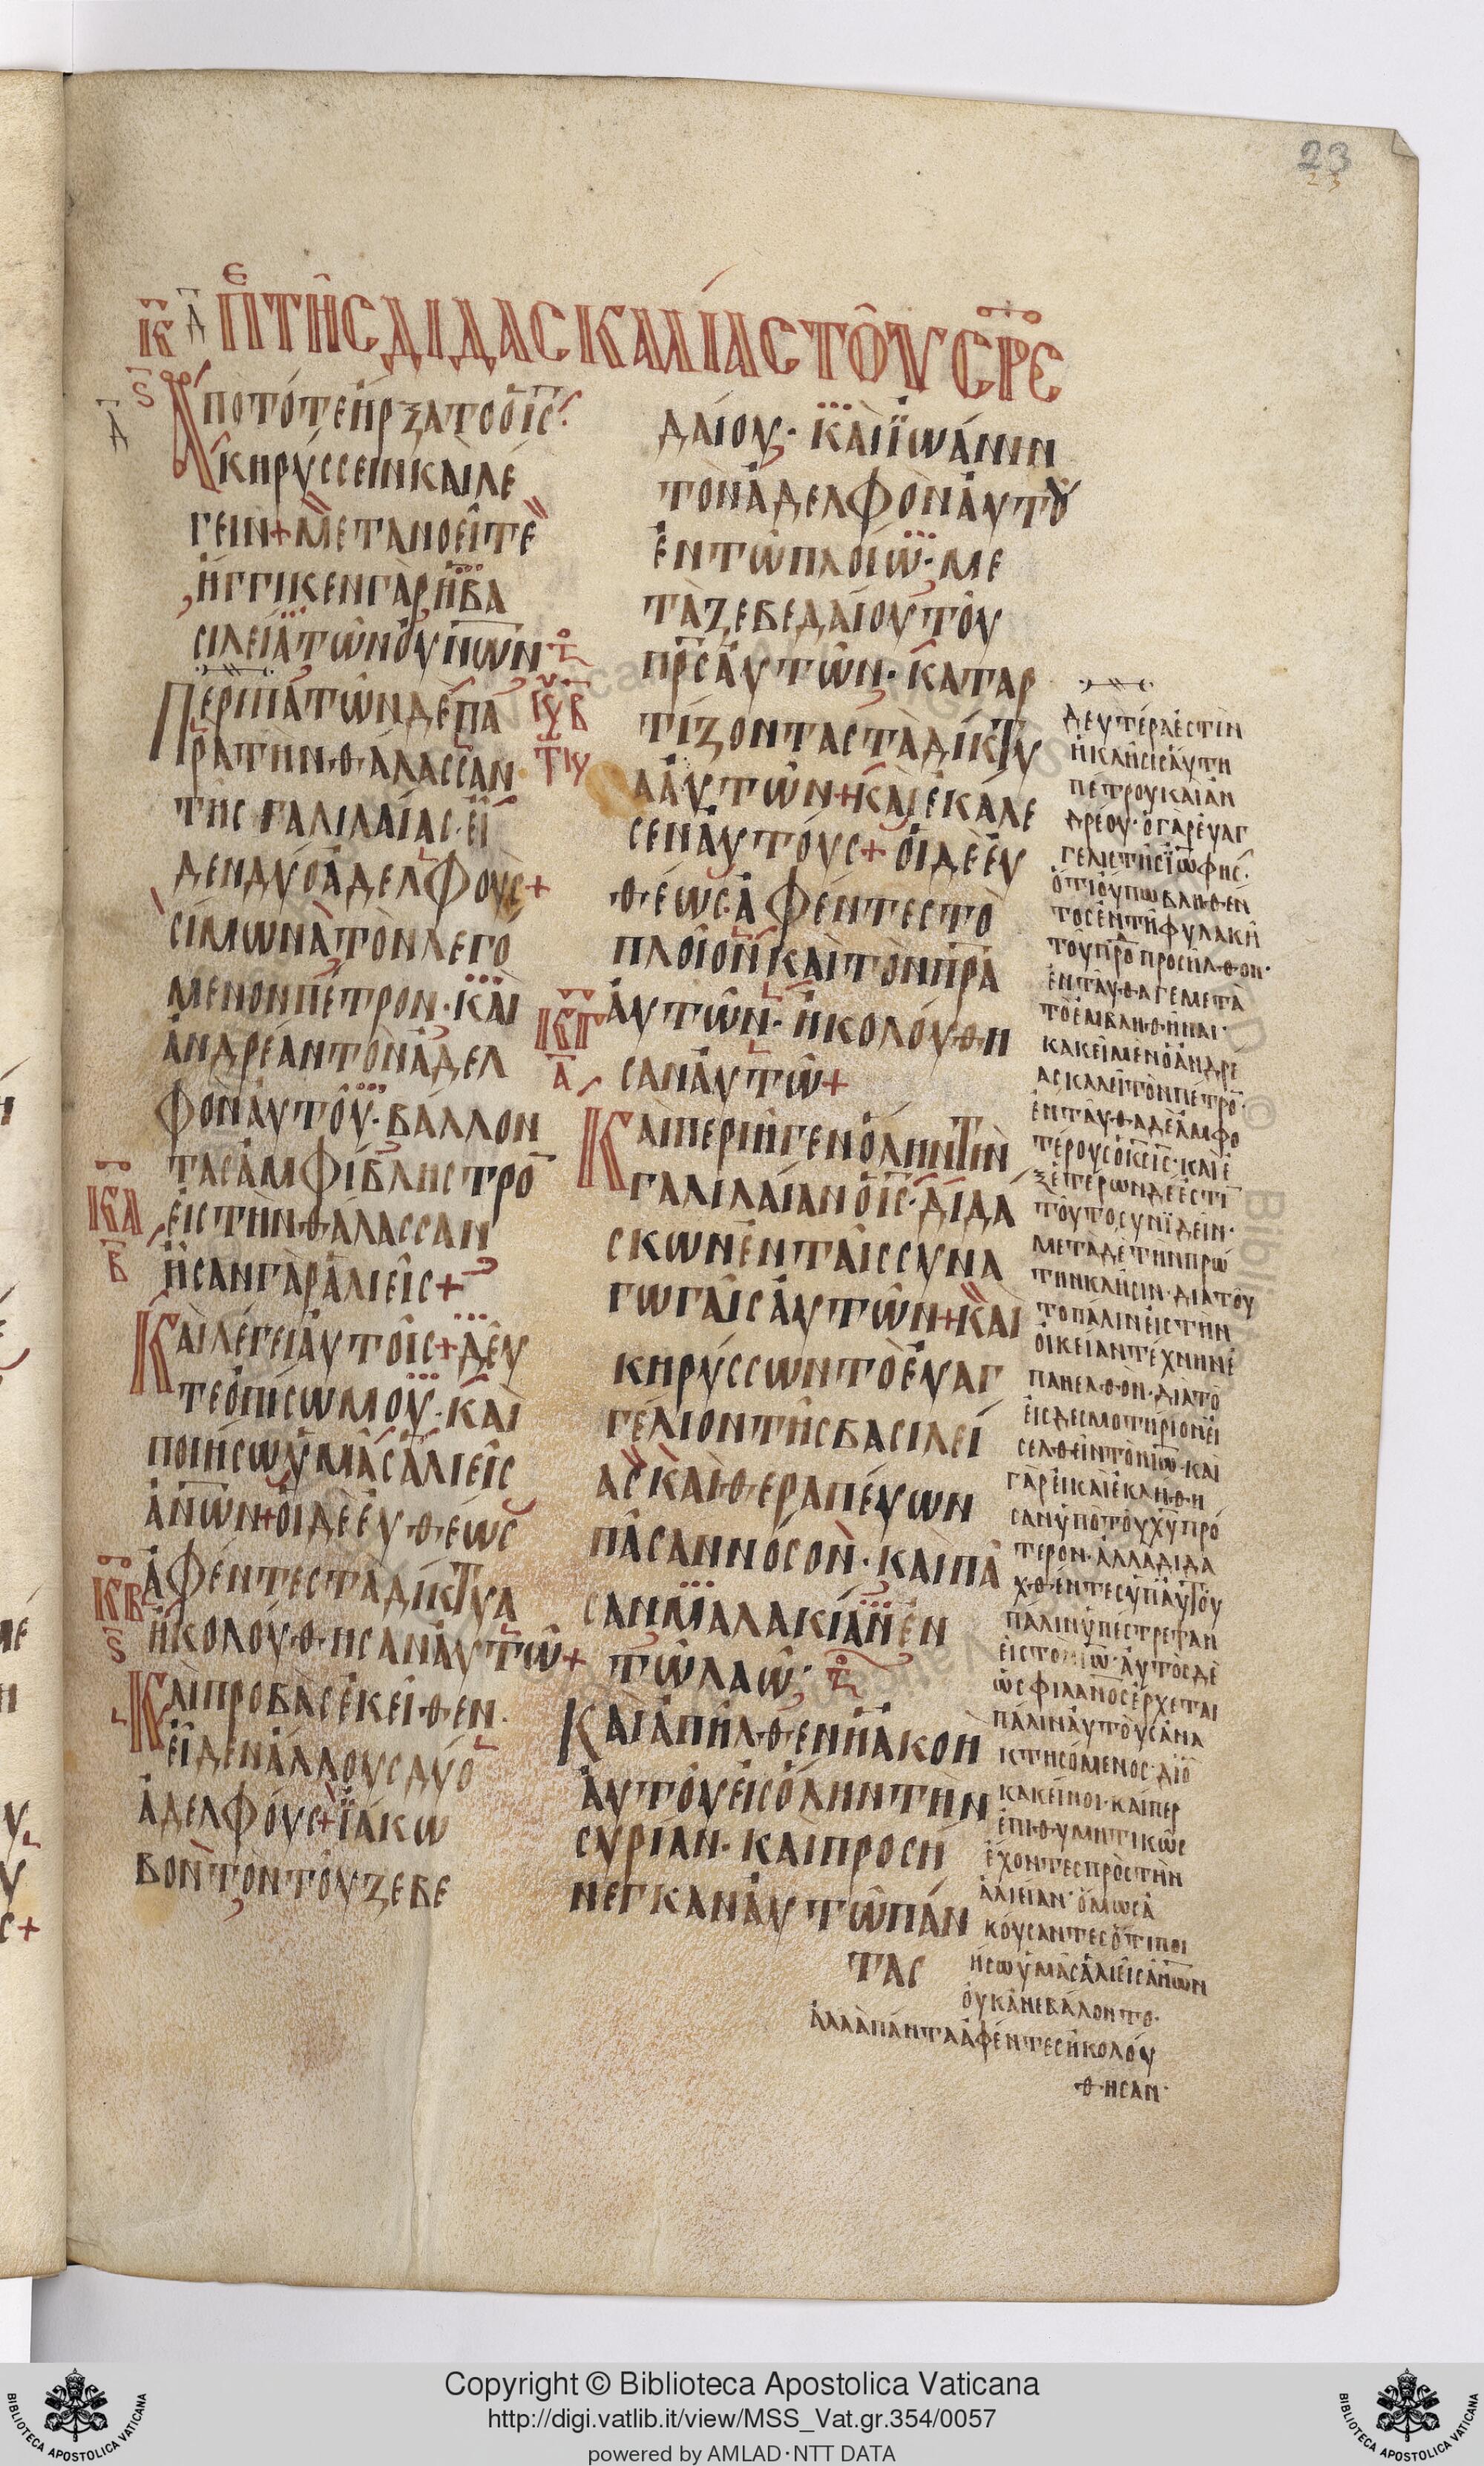 23
23
Ε
Κ Δ Π ΤΗΣ ΔΙΔΑΣΚΑΛΙΑΣ ΤΟΥ ΣΡΣ
Ἀπὸ τότε ἤρξατο ὁ ΙΣ
κηρύσσειν καὶ λέ
γειν + μετανοεῖτε
ἤγγικεν γὰρ ἡ βα
σιλεία τῶν ουνων
Περιπατῶν δὲ πα
ρὰ τὴν θάλασσαν
τῆς γαλιλαίας· εἶ
δεν δύο ἀδελφούς +
σίμωνα τὸν λεγό
μενον πέτρον· καὶ
ἀνδρέαν τὸν ἀδελ
φὸν αὐτοῦ· βάλλον
τας ἀμφίβληστρο
εἰς τὴν θάλασσαν
ἦσαν γὰρ ἁλιεῖς +
Καὶ λέγει αὐτοῖς + δεῦ
τε ὀπίσω μου· καὶ
ποιήσω ὑμᾶς ἁλιεῖς
ανων + οἱ δὲ εὐθέως
ἀφέντες τὰ δίκτυα
ἠκολούθησαν αὐτῶ +
Καὶ προβὰς ἐκεῖθεν·
εἶδεν ἄλλους δύο
ἀδελφούς + ϊάκω
βον τὸν τοῦ ζεβε
δαίου· καὶ ϊωάννην
τὸν ἀδελφὸν αὐτοῦ
ἐν τῶ πλοίω· με
τὰ ζεβεδαίου τοῦ
πρς αὐτῶν· καταρ
τίζοντας τὰ δίκτυ
α αὐτῶν + καὶ ἐκάλε
σεν αὐτούς + οἱ δὲ εὐ
θέως ἀφέντες τὸ
πλοῖον καὶ τὸν πρα
αὐτῶν· ἠκολούθη
σαν αὐτῶ +
Καὶ περιῆγεν ὅλην τὴν
γαλιλαίαν ὁ ΙΣ· διδά
σκων ἐν ταῖς συνα
γωγαῖς αὐτῶν + καὶ
κηρύσσων τὸ εὐαγ
γέλιον τῆς βασιλεί
ας καὶ θεραπεύων
πᾶσαν νόσον· καὶ πᾶ
σαν μαλακίαν ἐν
τῶ λαῶ·
Καὶ ἀπῆλθεν ἡ ἀκοὴ
αὐτοῦ εἰς ὅλην τὴν
συρίαν· καὶ προσή
νεγκαν αὐτῶ πάν
τας
δευτέρα ἐστὶν
ἡ κλῆσις αὕτη
πέτρου καὶ ἀν
δρέου· ὁ γὰρ εὐαγ
γελιστὴς ϊω φησ·
ὅτι οὔπω βληθέν
τος ἐν τῆ φυλακῆ
τοῦ προ προσῆλθον·
ἐνταῦθα γε μετὰ
τὸ ἐμβληθῆναι·
κἀκεῖ μὲν ὁ ἀνδρέ
ας καλεῖ τὸν πέτρο·
ἐνταῦθα δὲ ἀμφο
τέρους ὁ κς ις· καὶ ἐ
ξ ἑτέρων δέ ἐστι
τοῦτο συνϊδεῖν·
μετὰ δὲ τὴν πρώ
την κλῆσιν· διὰ τοῦ
το πάλιν εἰς τὴν
οἰκείαν τέχνην ἐ
πανελθον· διὰ τὸ
εἰς δεσμοτήριον εἰ
σελθεῖν τὸν ϊω· καὶ
γὰρ εἰ καὶ ἐκλήθη
σαν ὑπὸ τοῦ χυ πρό
τερον· ἀλλὰ διδα
χθέντες ὑπ αὐτοῦ
πάλιν ὑπέστρεψαν
εἰς τὸν ϊω· αὐτὸς δὲ
ὡς φιλανος ἔρχεται
πάλιν αὐτοὺς ἀνα
κτησόμενος· διὸ
κἀκεῖνοι· καίπερ
ἐπιθυμητικῶς
ἔχοντες πρὸς τὴν
ἁλιείαν· ὅμως ἀ
κούσαντες ὅτι ποι
ήσω ὑμᾶς ἁλιεῖς ανων
οὐκ ἀνεβάλοντο·
ἀλλὰ πάντα ἀφέντες ἠκολού
θησαν·
Copyright © Biblioteca Apostolica Vaticana
http://digi.vatlib.it/view/MSS_Vat.gr.354/0057
powered by AMLAD·NTT DATA
BIBLIOTECA APOSTOLICA VATICANA
BIBLIOTECA APOSTOLICA VATICANA